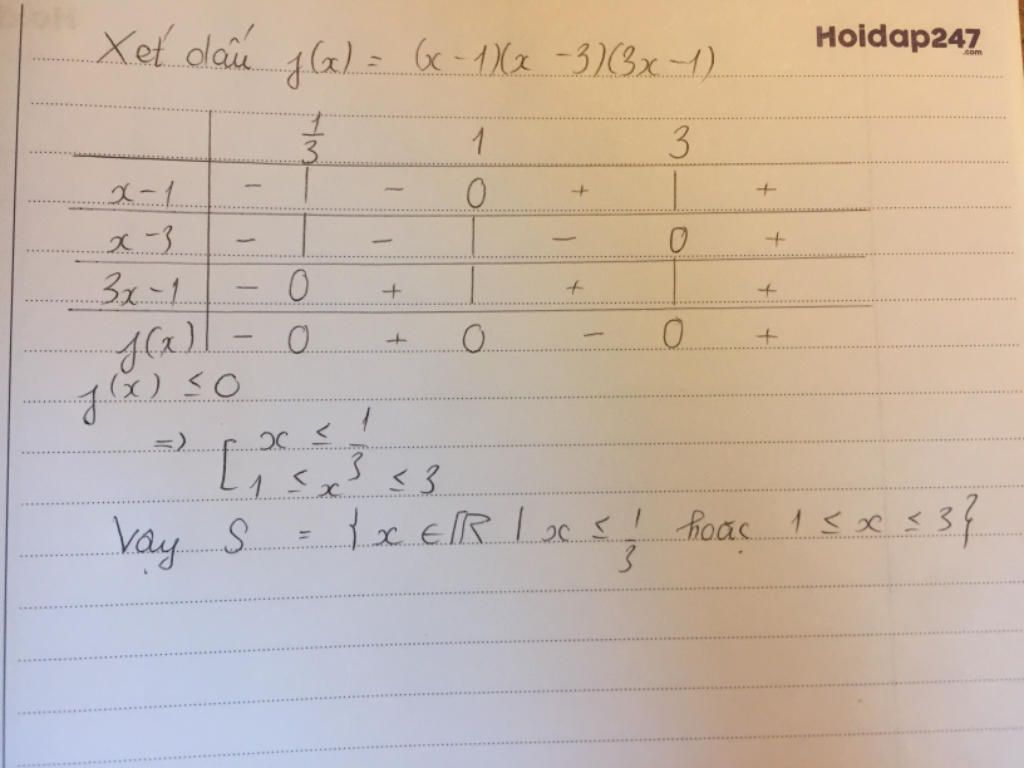 Hoidap247
.com
Xét dấu f(x) = (x-1)(x-3)(3x-1)
1/3 1 3
x-1 - | - 0 + | +
x-3 - | - | - 0 +
3x-1 - 0 + | + | +
f(x) - 0 + 0 - 0 +
f(x) ≤ 0
=> [ x ≤ 1/3
1 ≤ x ≤ 3
Vậy S = {x ∈ ℝ | x ≤ 1/3 hoặc 1 ≤ x ≤ 3}